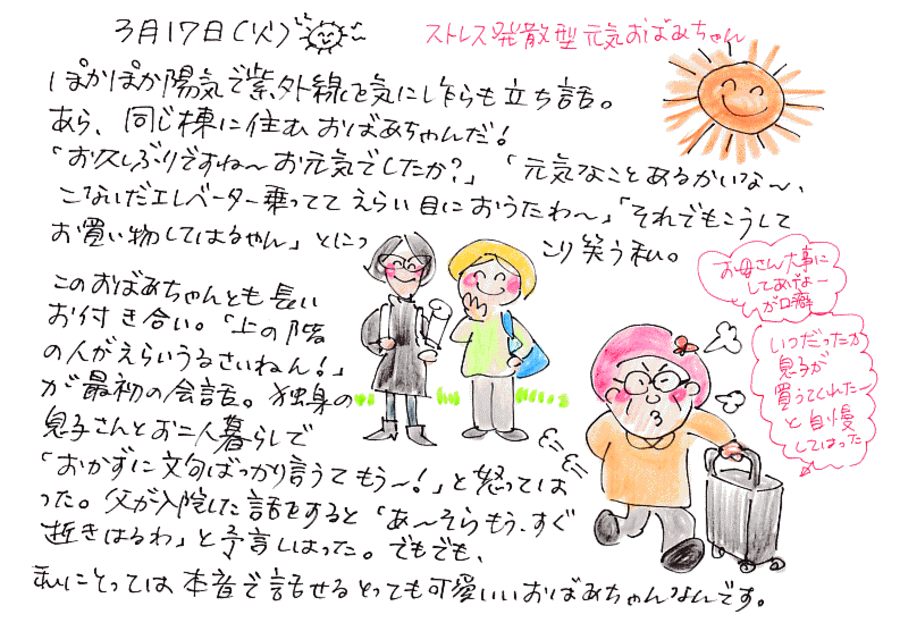 3月17日(火)
ストレス発散型元気おばあちゃん
ぽかぽか陽気で紫外線を気にし乍らも立ち話。
あら、同じ棟に住むおばあちゃんだ!
「お久しぶりですね〜お元気でしたか?」「元気なことあるかいな〜、
こないだエレベーター乗っててえらい目におうたわ〜」「それでもこうして
お買い物してはるやん」とにっこり笑う私。
お母さん大事に
してあげよー
が口癖
いつだったか
息子が
買うてくれたー
と自慢
してはった
このおばあちゃんとも長い
お付き合い。「上の階
の人がえらいうるさいねん!」
が最初の会話。独身の
息子さんとお二人暮らしで
「おかずに文句ばっかり言うてもう〜!」と怒っては
った。父が入院した話をすると「あ〜そらもう、すぐ
逝きはるわ」と予言しはった。でもでも、
私にとっては本音で話せるとっても可愛いいおばあちゃんなんです。